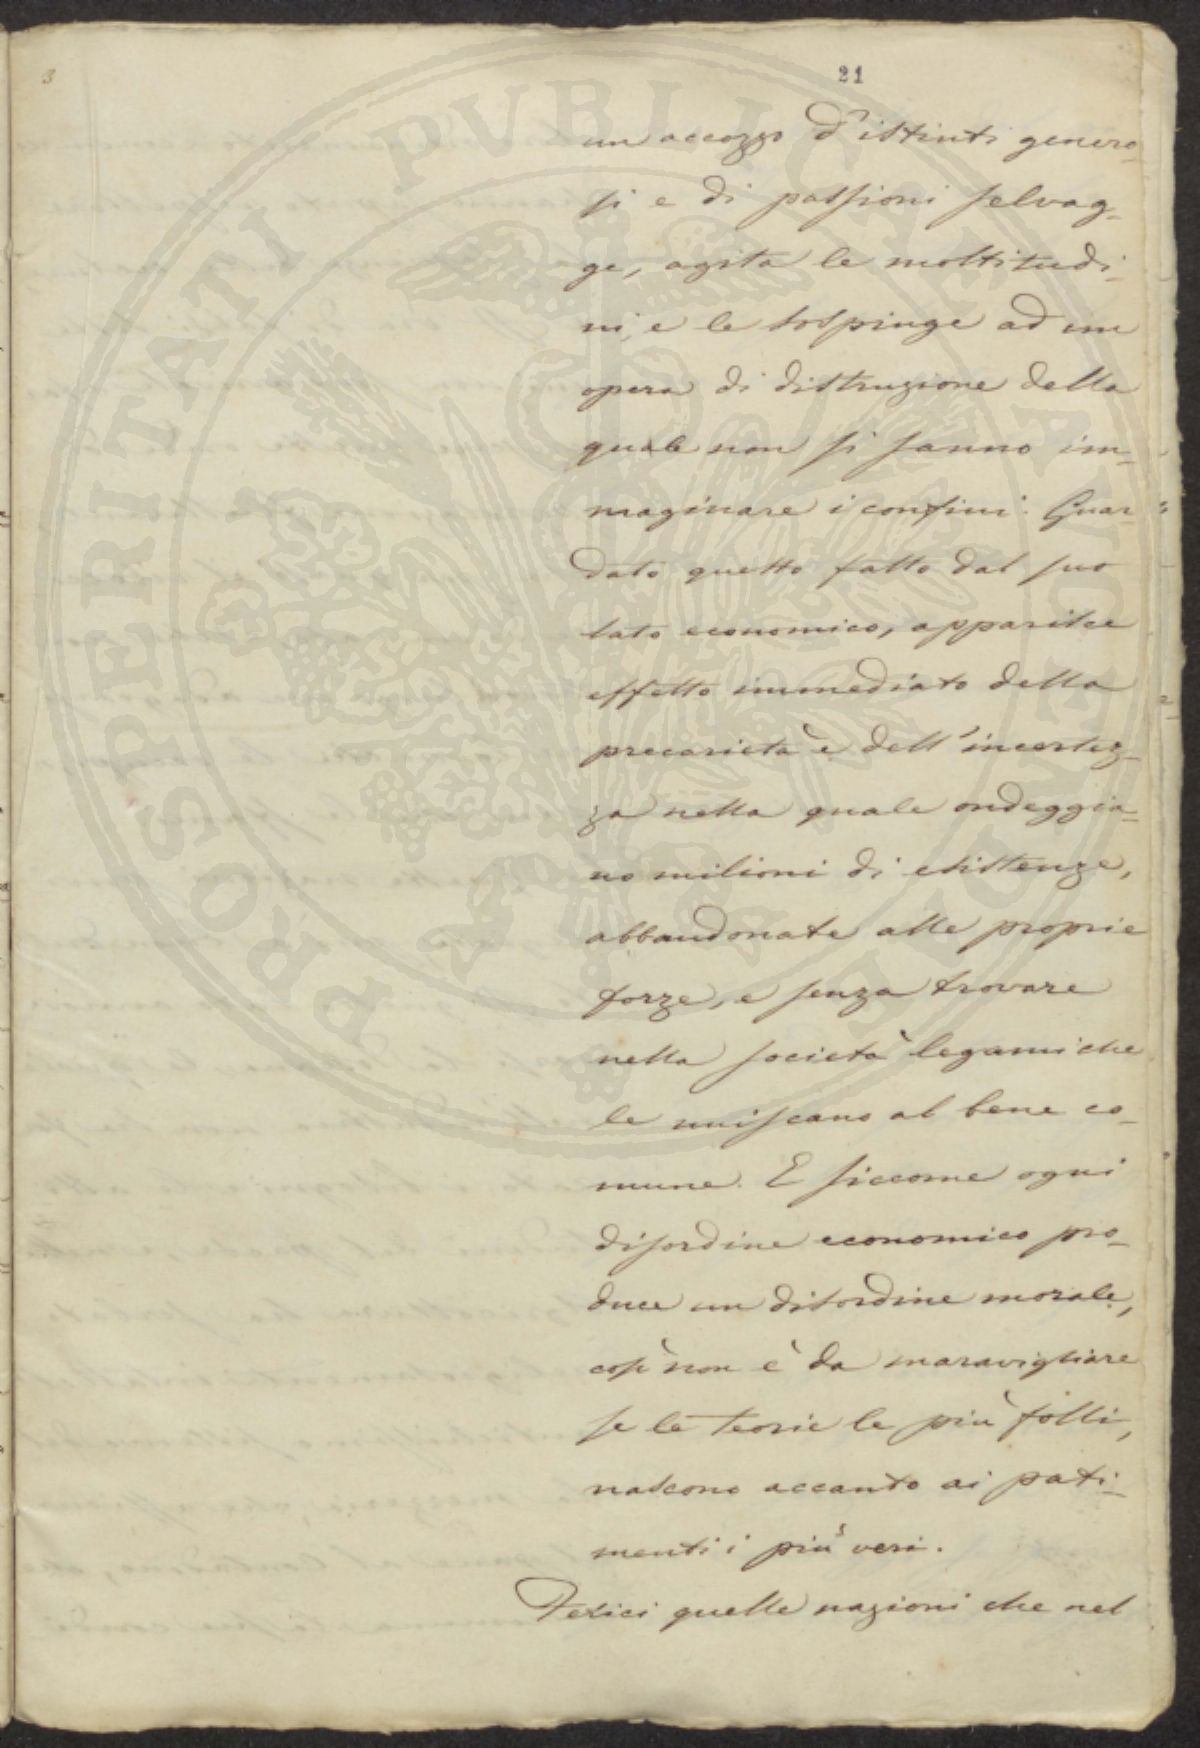 3
21
un accozzo d'istinti genero-
si e di passioni selvag-
ge, agita le moltitudi-
ni, e le sospinge ad un
opera di distruzione della
quale non si sanno im-
maginare i confini. Guar-
dato questo fatto dal suo
lato economico, apparisce
effetto immediato della
precarietà e dell'incertez-
za nella quale ondeggia-
no milioni di esistenze,
abbandonate alle proprie
forze, e senza trovare
nella società legami che
le uniscano al bene co-
mune. E siccome ogni
disordine economico pro-
duce un disordine morale,
così non è da maravigliare
se le teorie le più folli,
nascono accanto ai pati-
menti i più veri.
Felici quelle nazioni che nel
PROSPERITATI PUBLICAE